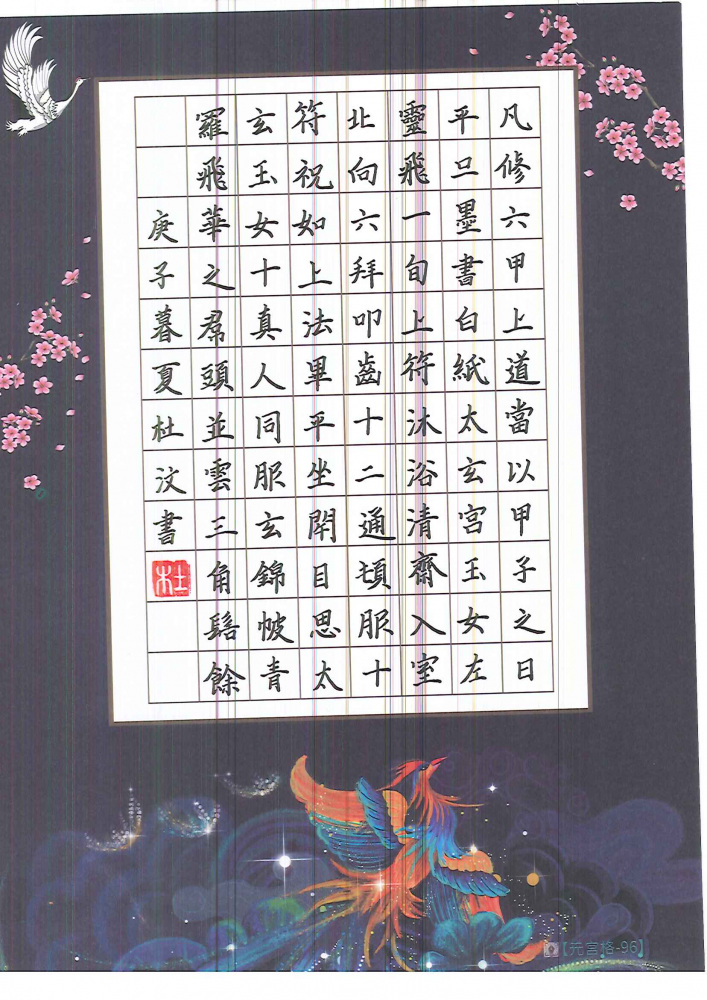 凡修六甲上道當以甲子之日
平旦墨書白紙太玄宮玉女左
靈飛一旬上符沐浴清齋入室
北向六拜叩齒十二通頓服十
符祝如上法畢平坐閉目思太
玄玉女十真人同服玄錦帔青
羅飛華之帬頭並雲三角髻餘
庚子暮夏杜汶書
杜
【元宮格-96】